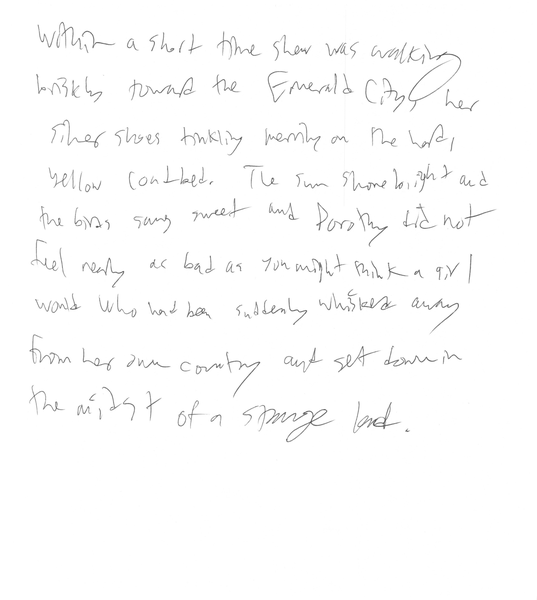 Within a short time shew was walking
briskly toward the Emerald City, her
silver shoes tinkling merrily on the hard,
yellow roadbed. The sun shone bright and
the birds sang sweet and Dorothy did not
feel nearly as bad as you might think a girl
would who had been suddenly whisked away
from her own country and set down in
the midst of a strange land.